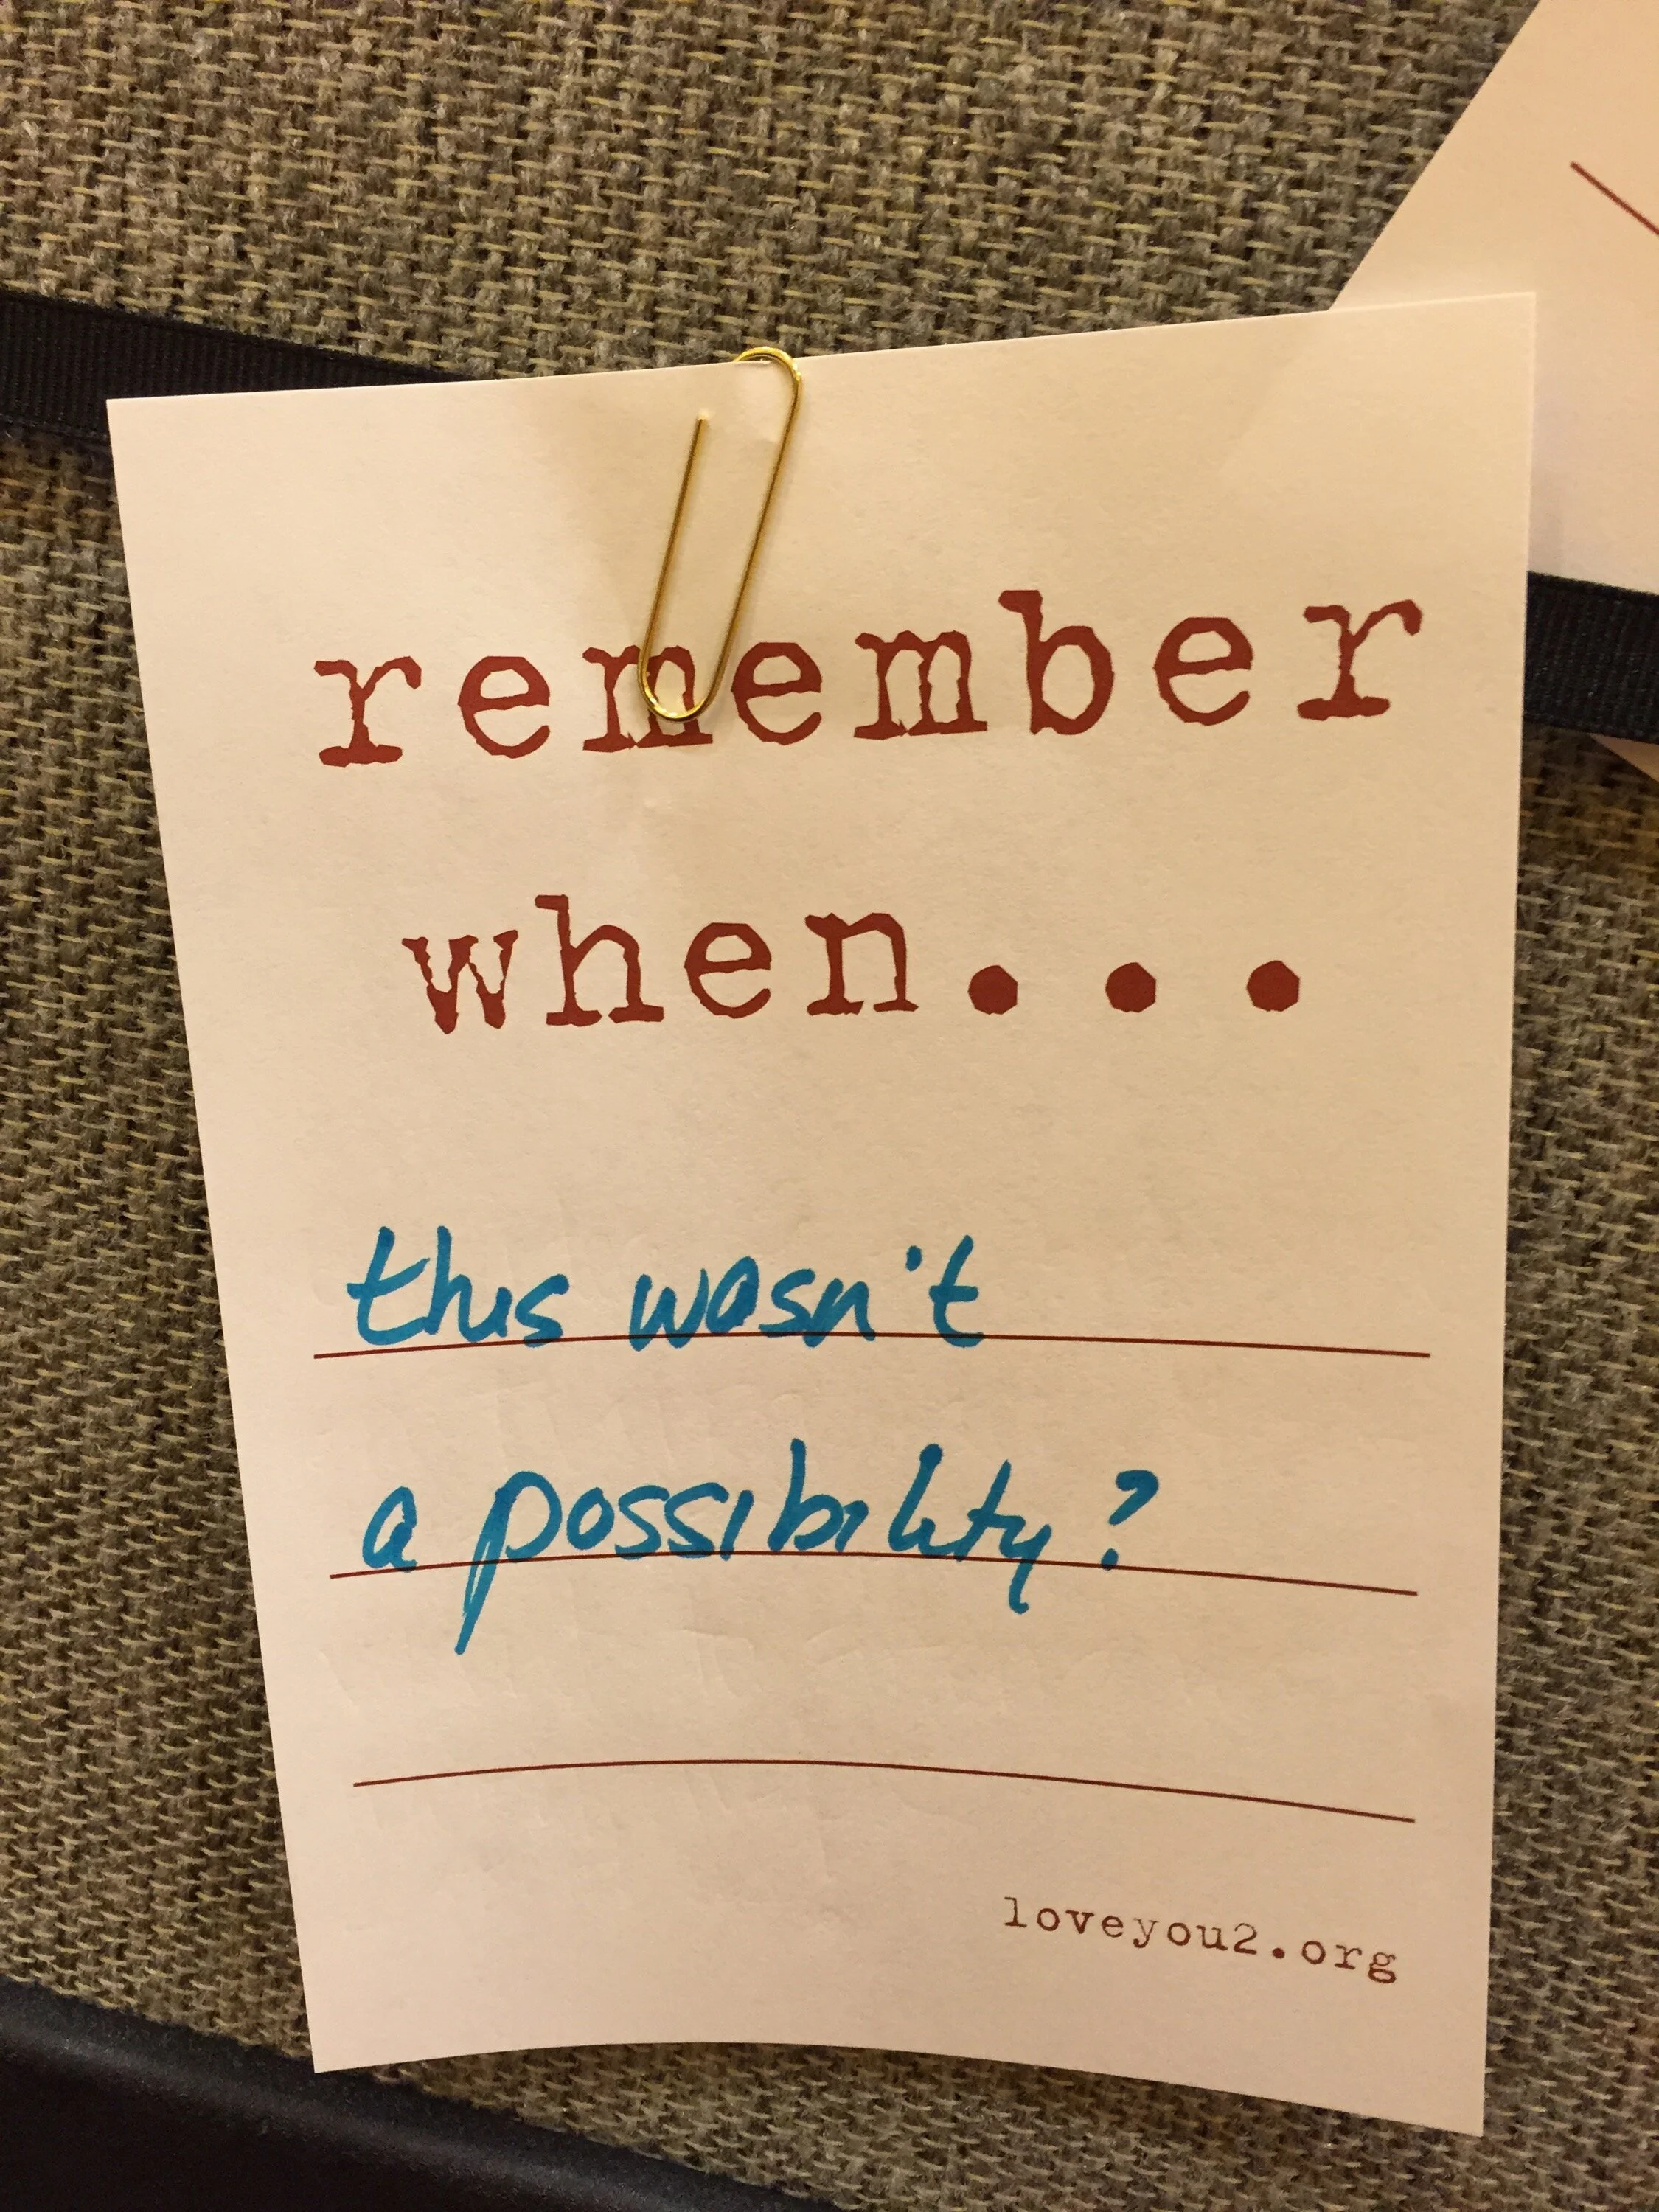 remember
when...
this wasn't
a possibility?
loveyou2.org